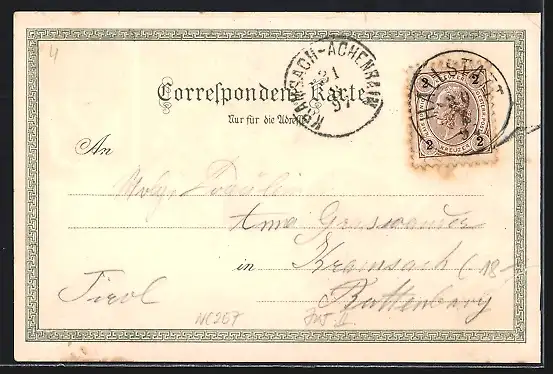 4
KRAMSACH-ACHENRAIN
31
97
HALLSTATT
2 2
2 KREUZER 2
Correspondenz-Karte
Nur für die Adresse
An
Fräulein
Anna
in Kramsach
Tirol
Rattenberg
18
NC207